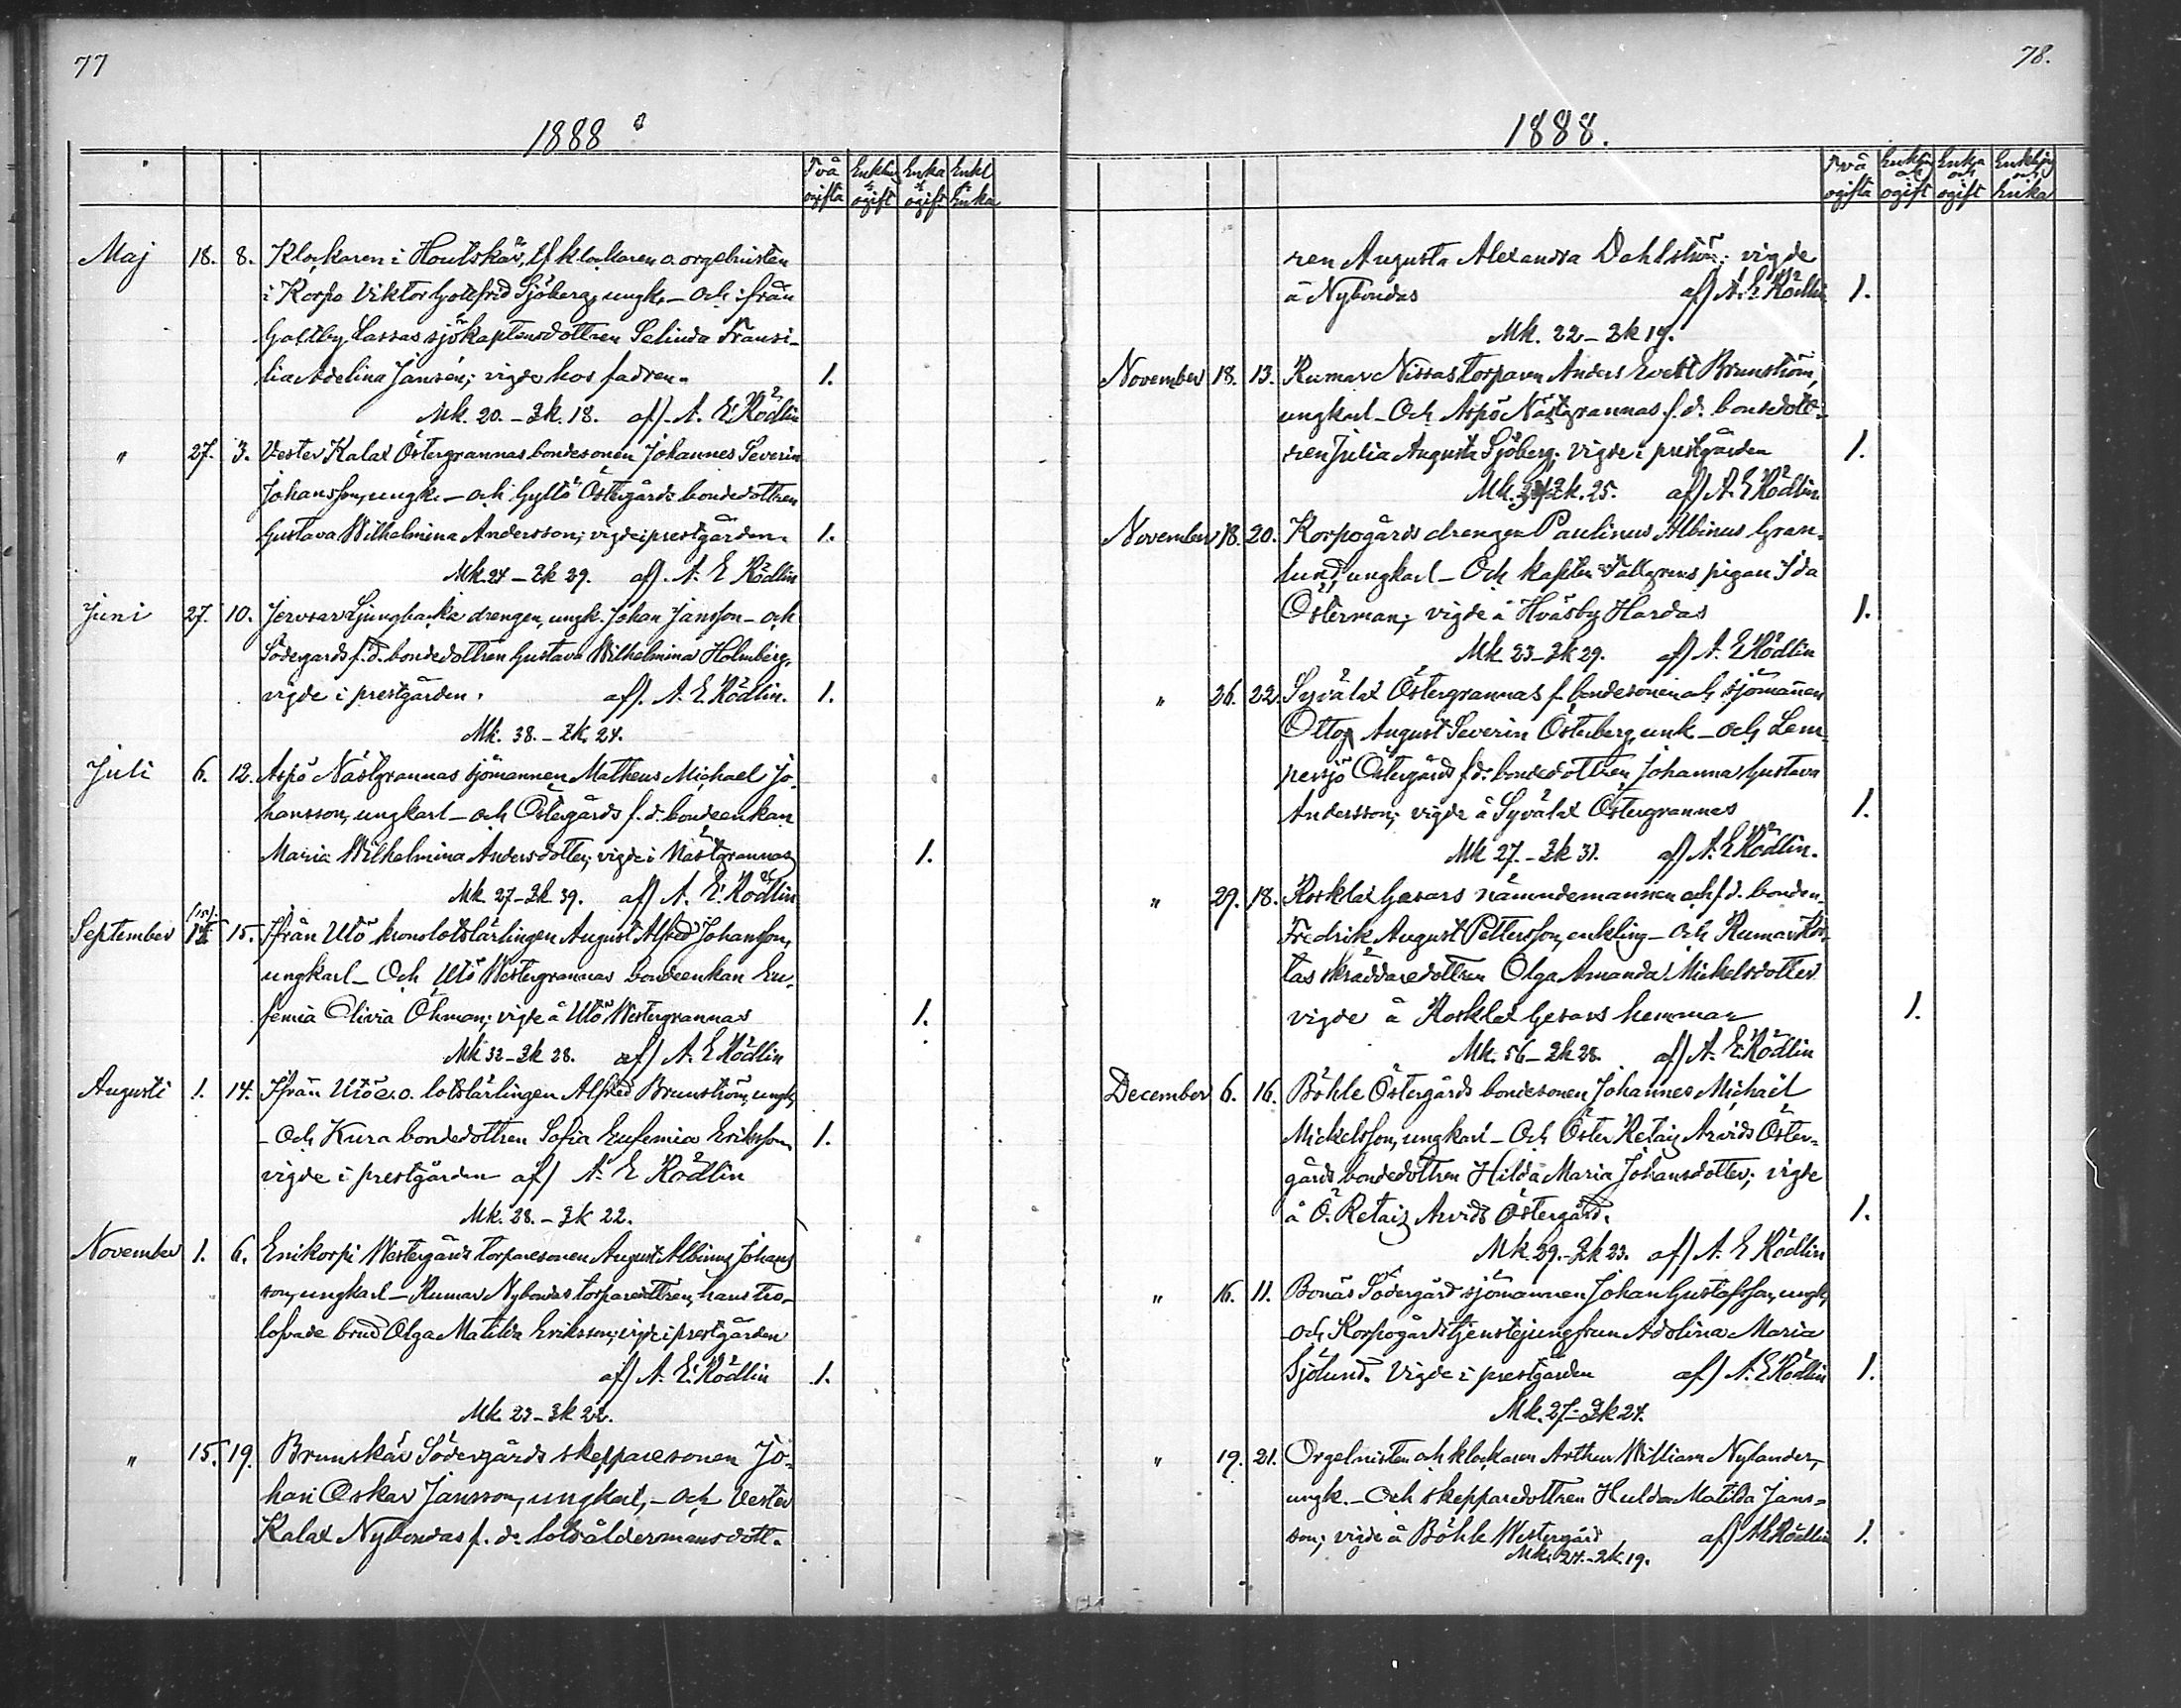 77
1888
Två ogifta Enkling o. ogift Enka o. ogift Enkl o. Enka
Maj 18. 8. Klockaren i Houtskär, tf klockaren o. orgelnisten
i Korpo Viktor Gottfrid Sjöberg, ungk. – Och ifrån
Galtby Lassas sjökaptensdottren Selinda Fransi-
lia Adelina Jansén; vigde hos fadren. 1.
Mk. 20. – Qk. 18. af). A. E. Rödlin
" 27. 3. Vester Kalax Östergrannas bondesonen Johannes Severin
Johansson, ungk. – och Gyltö Östergårds bondedottren
Gustava Wilhelmina Andersson; vigde i prestgården. 1.
Mk. 24 – Qk 29. af). A. E Rödlin
Juni 27. 10. Jervsar Ljungbacka drengen, ungk. Johan Jansson – och
Södergards f.d. bondedottren Gustava Wilhelmina Holmberg,
vigde i prestgården. af). A. E. Rödlin. 1.
Mk. 38. – Qk. 24.
Juli 6. 12. Aspö Nästgrannas sjömannen Matheus Michael Jo-
hansson, ungkarl – och Östergårds f. d. bondeenkan
Maria Wilhelmina Andersdotter; vigde i Nästgrannas 1.
Mk. 27 – Qk 39. af) A. E. Rödlin
September (15). 15. Ifrån Utö kronolotslärlingen August Alfred Johansson,
ungkarl – Och Utö Westergrannas bondeenkan Eu-
femia Olivia Öhman; vigde å Utö Westergrannas 1.
Mk 32 – Qk 28. af) A. E Rödlin
Augusti 1. 14. Ifrån Utö e.o. lotslärlingen Alfred Brunström, ungk,
– Och Kura bondedottren Sofia Eufemia Eriksson 1.
vigde i prestgården af) A. E Rödlin
Mk. 28. – Qk 22.
November 1. 6. Enikorpi Westergårds torparesonen August Albinus Johans
son, ungkarl – Rumar Nybondas torparedottren, hans tro-
lofvade brud Olga Matilda Eriksson; vigde i prestgården
af) A. E. Rödlin 1.
Mk. 23 – Qk 22.
" 15. 19. Brunskär Södergårds skepparesonen Jo-
han Oskar Jansson, ungkarl, – och Vester
Kalax Nybondas f. d. lotsåldermansdott-
78.
1888.
Två ogifta Enkling och ogift Enka och ogift Enkling och Enka
ren Augusta Alexandra Dahlström; vigde
å Nybondas af) A. E Rödlin 1.
Mk. 22 – Qk 19.
November 18. 13. Rumar Nissas torparen Anders Evert Brunström,
ungkarl – Och Aspö Nästgrannas f. d. bondedott-
ren Julia Augusta Sjöberg; vigde i prestgården 1.
Mk. Qk. 25. af) A. E Rödlin
November 18. 20. Korpogårds drengen Paulinus Albinus Gran-
lund, ungkarl – Och kapten Tallgrens pigan Ida
Österman; vigde å Hväsby Hardas 1.
Mk. 23 – Qk 29. af) A. E Rödlin
" 26. 22. Syvälax Östergrannas f. bondesonen och sjömannen
Otto August Severin Österberg, unk – och Lem-
persjö Östergårds f.d. bondedottren Johanna Gustava
Andersson; vigde å Syvälax Östergrannas 1.
Mk 27. – Qk 31. af) A. E Rödlin.
" 29. 18. Rosklax Gesars nämndemannen och f. d. bonden,
Fredrik August Pettersson, enkling – Och Rumar Kos-
tas skräddaredottren Olga Amanda Michelsdotter
vigde å Rosklax Gesars hemman 1.
Mk. 56 – Qk 28. af) A. E. Rödlin
December 6. 16. Böhle Östergårds bondesonen Johannes Michaël
Mickelsson, ungkarl – Och Öster Retais Arvids Öster-
gårds bondedottren Hilda Maria Johansdotter; vigde
å Ö. Retais Arvids Östergård. 1.
Mk. 29. – Qk 23. af) A. E Rödlin
" 16. 11. Bonäs Södergård sjömannen Johan Gustafsson, ungk,
och Korpogårds tjenstejungfrun Adolina Maria
Sjölund. Vigde i prestgården af) A. E Rödlin 1.
Mk. 27 – Qk 24.
" 19. 21. Orgelnisten och klockaren Arthur William Nylander,
ungk. – Och skepparedottren Hulda Matilda Jans-
son; vigde å Böhle Westergård af) A E Rödlin 1.
Mk. 24. – Qk. 19.